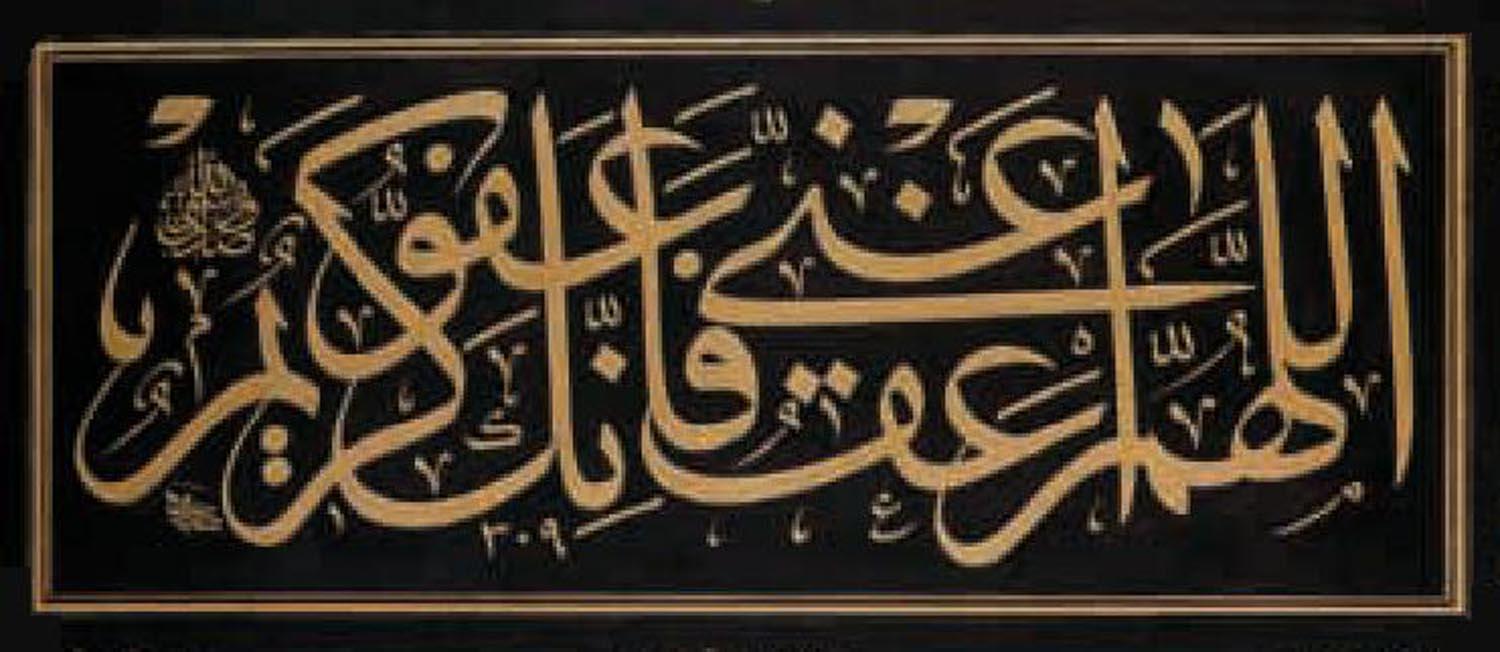 اللهم اعف عنى فانك عفو كريم
٣٠٩